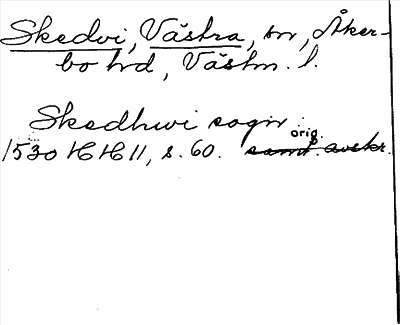 Skedvi, Västra, sn, Åker-
bo hd, Västm. l.
Skedhwi sogn
orig.
1530 HH 11, s. 60. samt. avskr.